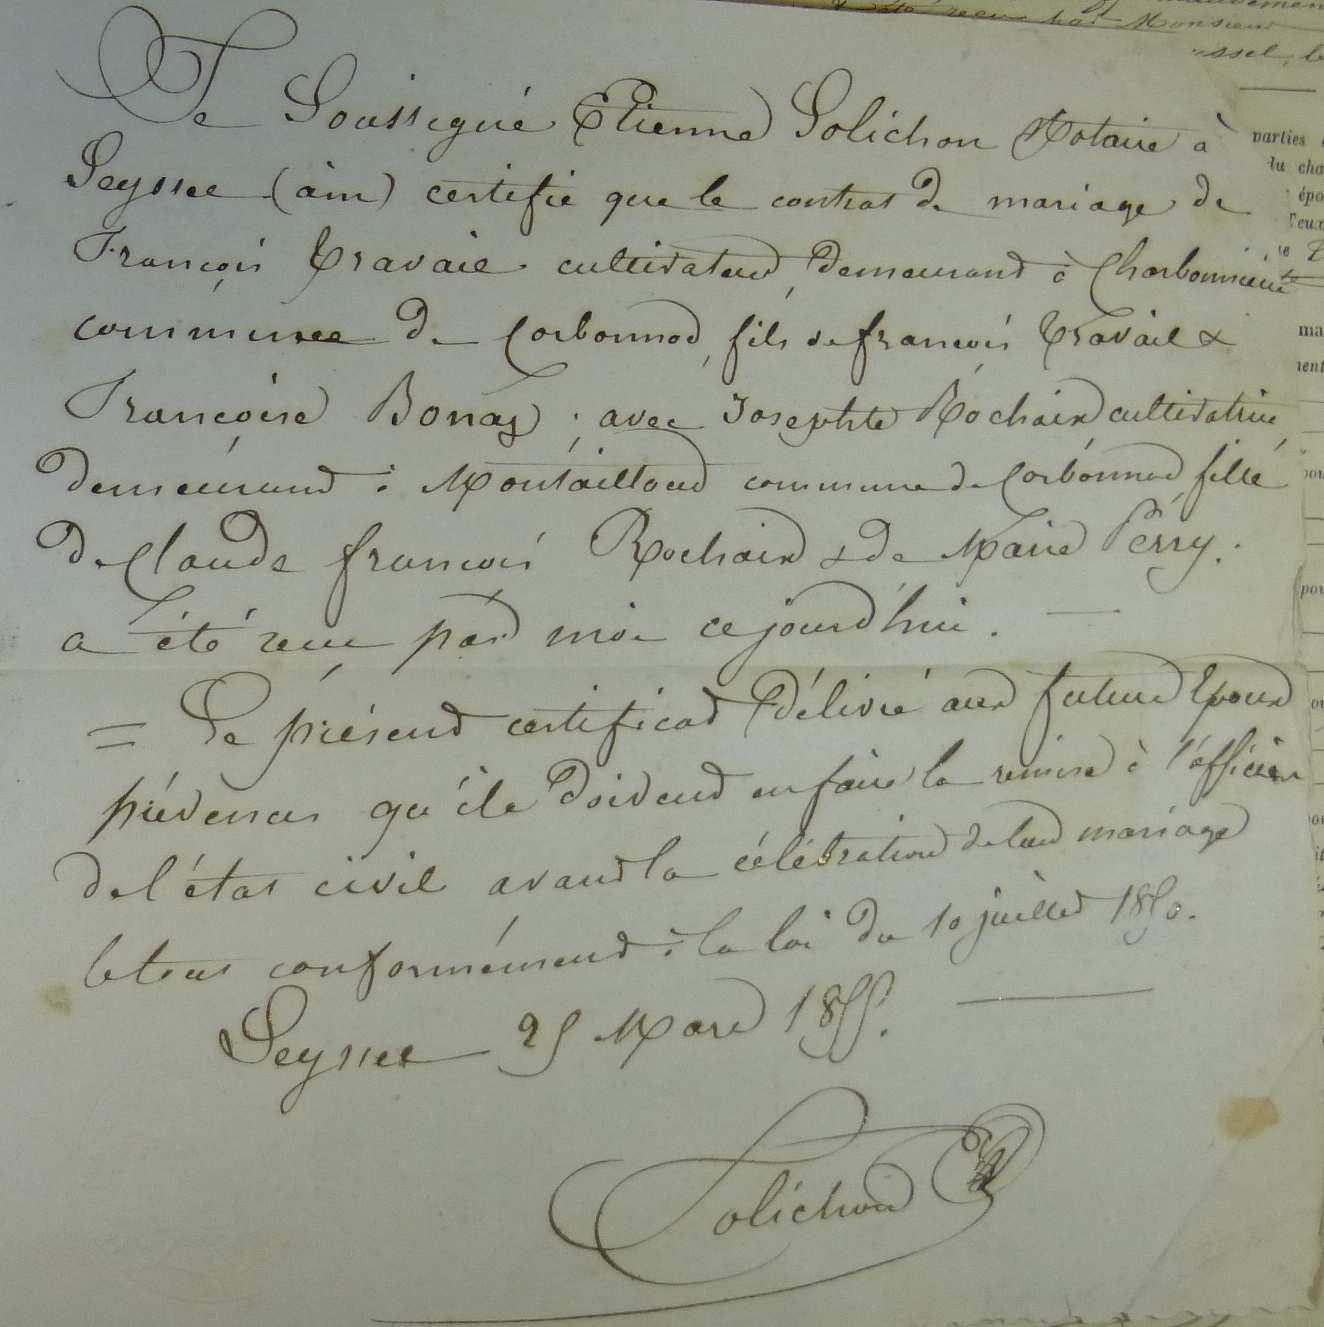 Je Soussigné Etienne Solichon Notaire à
Seyssel (ain) certifie que le contrat de mariage de
François Travail cultivateur, demeurant à Charbonnière
commune de Corbonod, fils de françois Travail &
Françoise Bonaz ; avec Josephte Rochaix cultivatrice
demeurant à Montaillou commune de Corbonod fille
de Claude françois Rochaix & de Marie Pérry.
a été recu par moi cejourd'hui. —
= Le présent certificat délivré aux futurs Epoux
prévenus qu'ils doivent en faire la remise à l'officier
de l'état civil avant la célébration de leur mariage
le tout conformément à la loi du 10 juillet 1850.
Seyssel 25 Mars 1855. —
Solichon
parties
du cha
épo